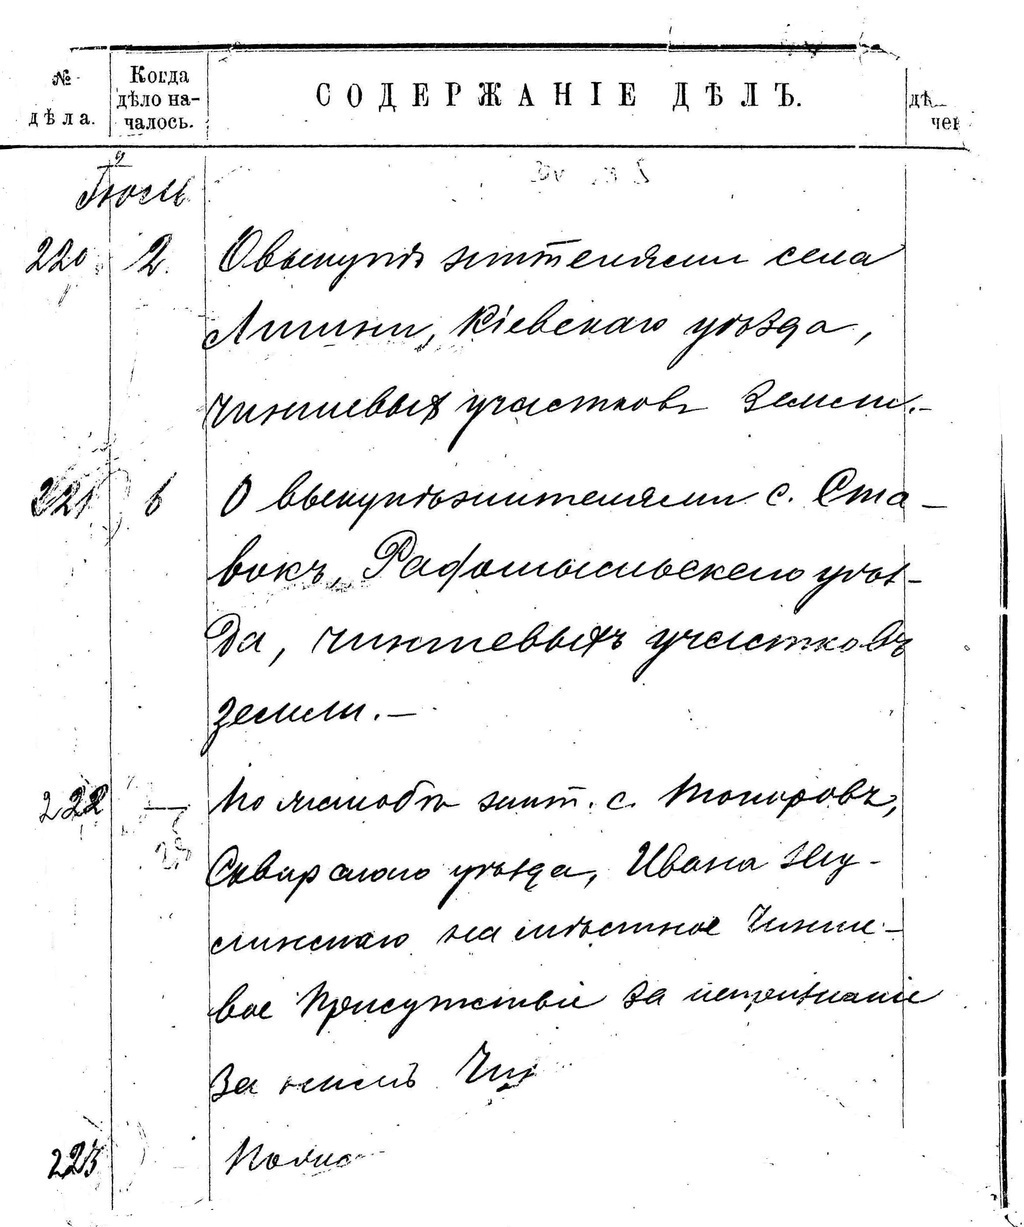 № дѣла.
Когда дѣло началось.
СОДЕРЖАНІЕ ДѢЛЪ.
дѣ
чен
Іюль
220 2 О выкупѣ жителями села
Липки, Кіевскаго уѣзда,
чиншевыхъ участковъ земли.-
221 6 О выкупѣ жителями с. Ста-
вокъ, Радомысльскаго уѣз-
да, чиншевыхъ участковъ
земли.-
222 — По жалобѣ жит. с. Топоровъ,
Сквирскаго уѣзда, Ивана
на мѣстное Чинше-
вое Присутствіе за непризнаніе
за нимъ Чин
223 По жал